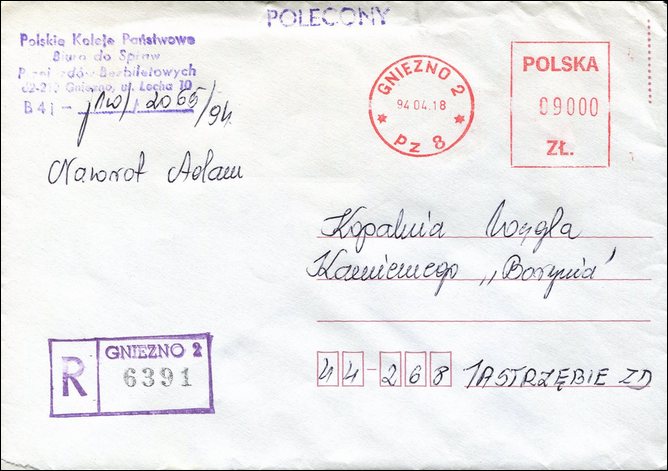 POLECONY
Polskie Koleje Państwowe
Biuro do Spraw
Przejazdów Bezbiletowych
62-200 Gniezno, ul. Lecha 10
B4j - 2065/94
Nawrot Adam
GNIEZNO 2
94.04.18
PZ 8
POLSKA
09000
ZŁ.
Kopalnia Węgla
Kamiennego „Borynia"
44-268 JASTRZĘBIE ZD
R
GNIEZNO 2
6391